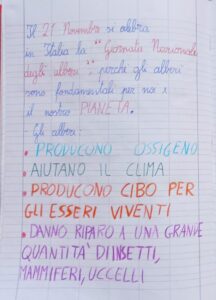 Il 21 Novembre si celebra
in Italia la "Giornata Nazionale
degli alberi", perché gli alberi
sono fondamentali per noi e
il nostro PIANETA.
Gli alberi:
• PRODUCONO OSSIGENO
• AIUTANO IL CLIMA
• PRODUCONO CIBO PER
GLI ESSERI VIVENTI
• DANNO RIPARO A UNA GRANDE
QUANTITÀ DI INSETTI,
MAMMIFERI, UCCELLI